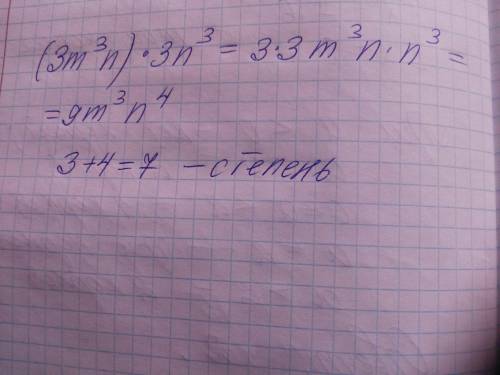 (3m³n)·3n³ = 3·3m³n·n³ =
= 9m³n⁴
3+4=7 – степень